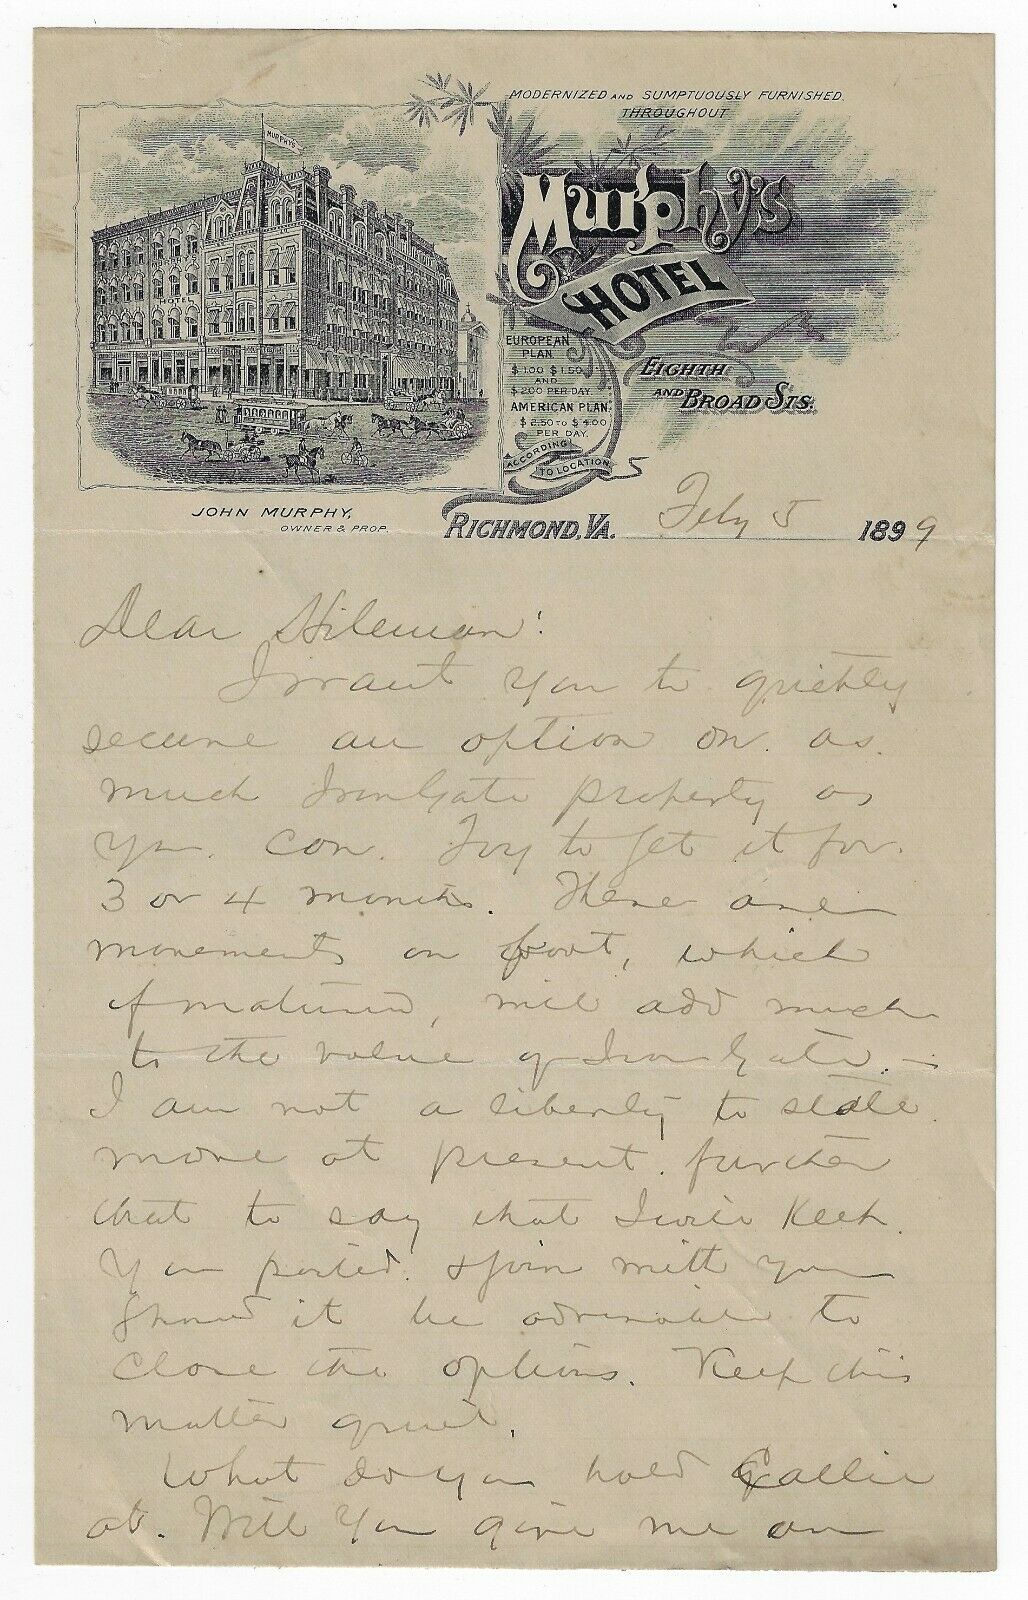 MODERNIZED AND SUMPTUOUSLY FURNISHED
THROUGHOUT
MURPHY'S
HOTEL
Murphy's
HOTEL
EUROPEAN
PLAN
$1.00 $1.50
AND
$2.00 PER DAY
AMERICAN PLAN.
$2.50 TO $4.00
PER DAY.
ACCORDING
TO LOCATION
EIGHTH
AND BROAD STS.
JOHN MURPHY,
OWNER & PROP.
RICHMOND, VA. Feby 5 1899
Dear Hileman:
I want you to quickly
secure an option on as
much Iron Gate property as
you can. Try to get it for
3 or 4 months. There are
movements on foot, which
if matured, will add much
to the value of Iron Gate. —
I am not a liberty to state
more at present further
that to say that I will keep
you posted & join with you
should it be advisable to
close the options. Keep this
matter quiet.
What do you hold Gallie
at. Will you give me an